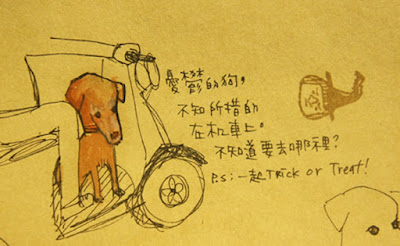 憂鬱的狗，
不知所措的
在机車上。
不知道要去哪裡?
P.S:一起TRICK or Treat!